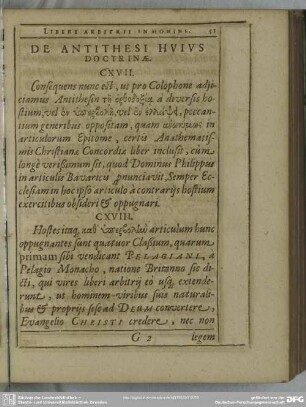 LIBERI ARBITRII IN HOMINE. 51
DE ANTITHESI HVIVS
DOCTRINÆ.
CXVII.
Consequens nunc est, ut pro Colophone adji-
ciamus Antithesin τῇ ὀρθοδοξίᾳ à diversis ho-
stium, vel ἐν ὑπερβολῇ, vel ἐν ἐλλείψει, peccan-
tium generibus oppositam, quam in
articulorum Epitome, certis Anathematis-
mis Christianæ Concordiæ liber inclusit, cùm
longè verißimum sit, quod Dominus Philippus
in articulis Bavaricis pronunciavit, Semper Ec-
clesiam in hoc ipso articulo à contrarijs hostium
exercitibus obsideri & oppugnari.
CXVIII.
Hostes itaq, καθ' ὑπερβολὴν articulum hunc
oppugnantes sunt quatuor Claßium, quarum
primam sibi vendicant PELAGIANI, à
Pelagio Monacho, natione Britanno sic di-
cti, qui vires liberi arbitrij eò usq, extende-
runt, ut hominem viribus suis natural-
bus & proprijs sese ad DEUM convertere,
Evangelio CHRISTI credere, nec non
G 2 legem